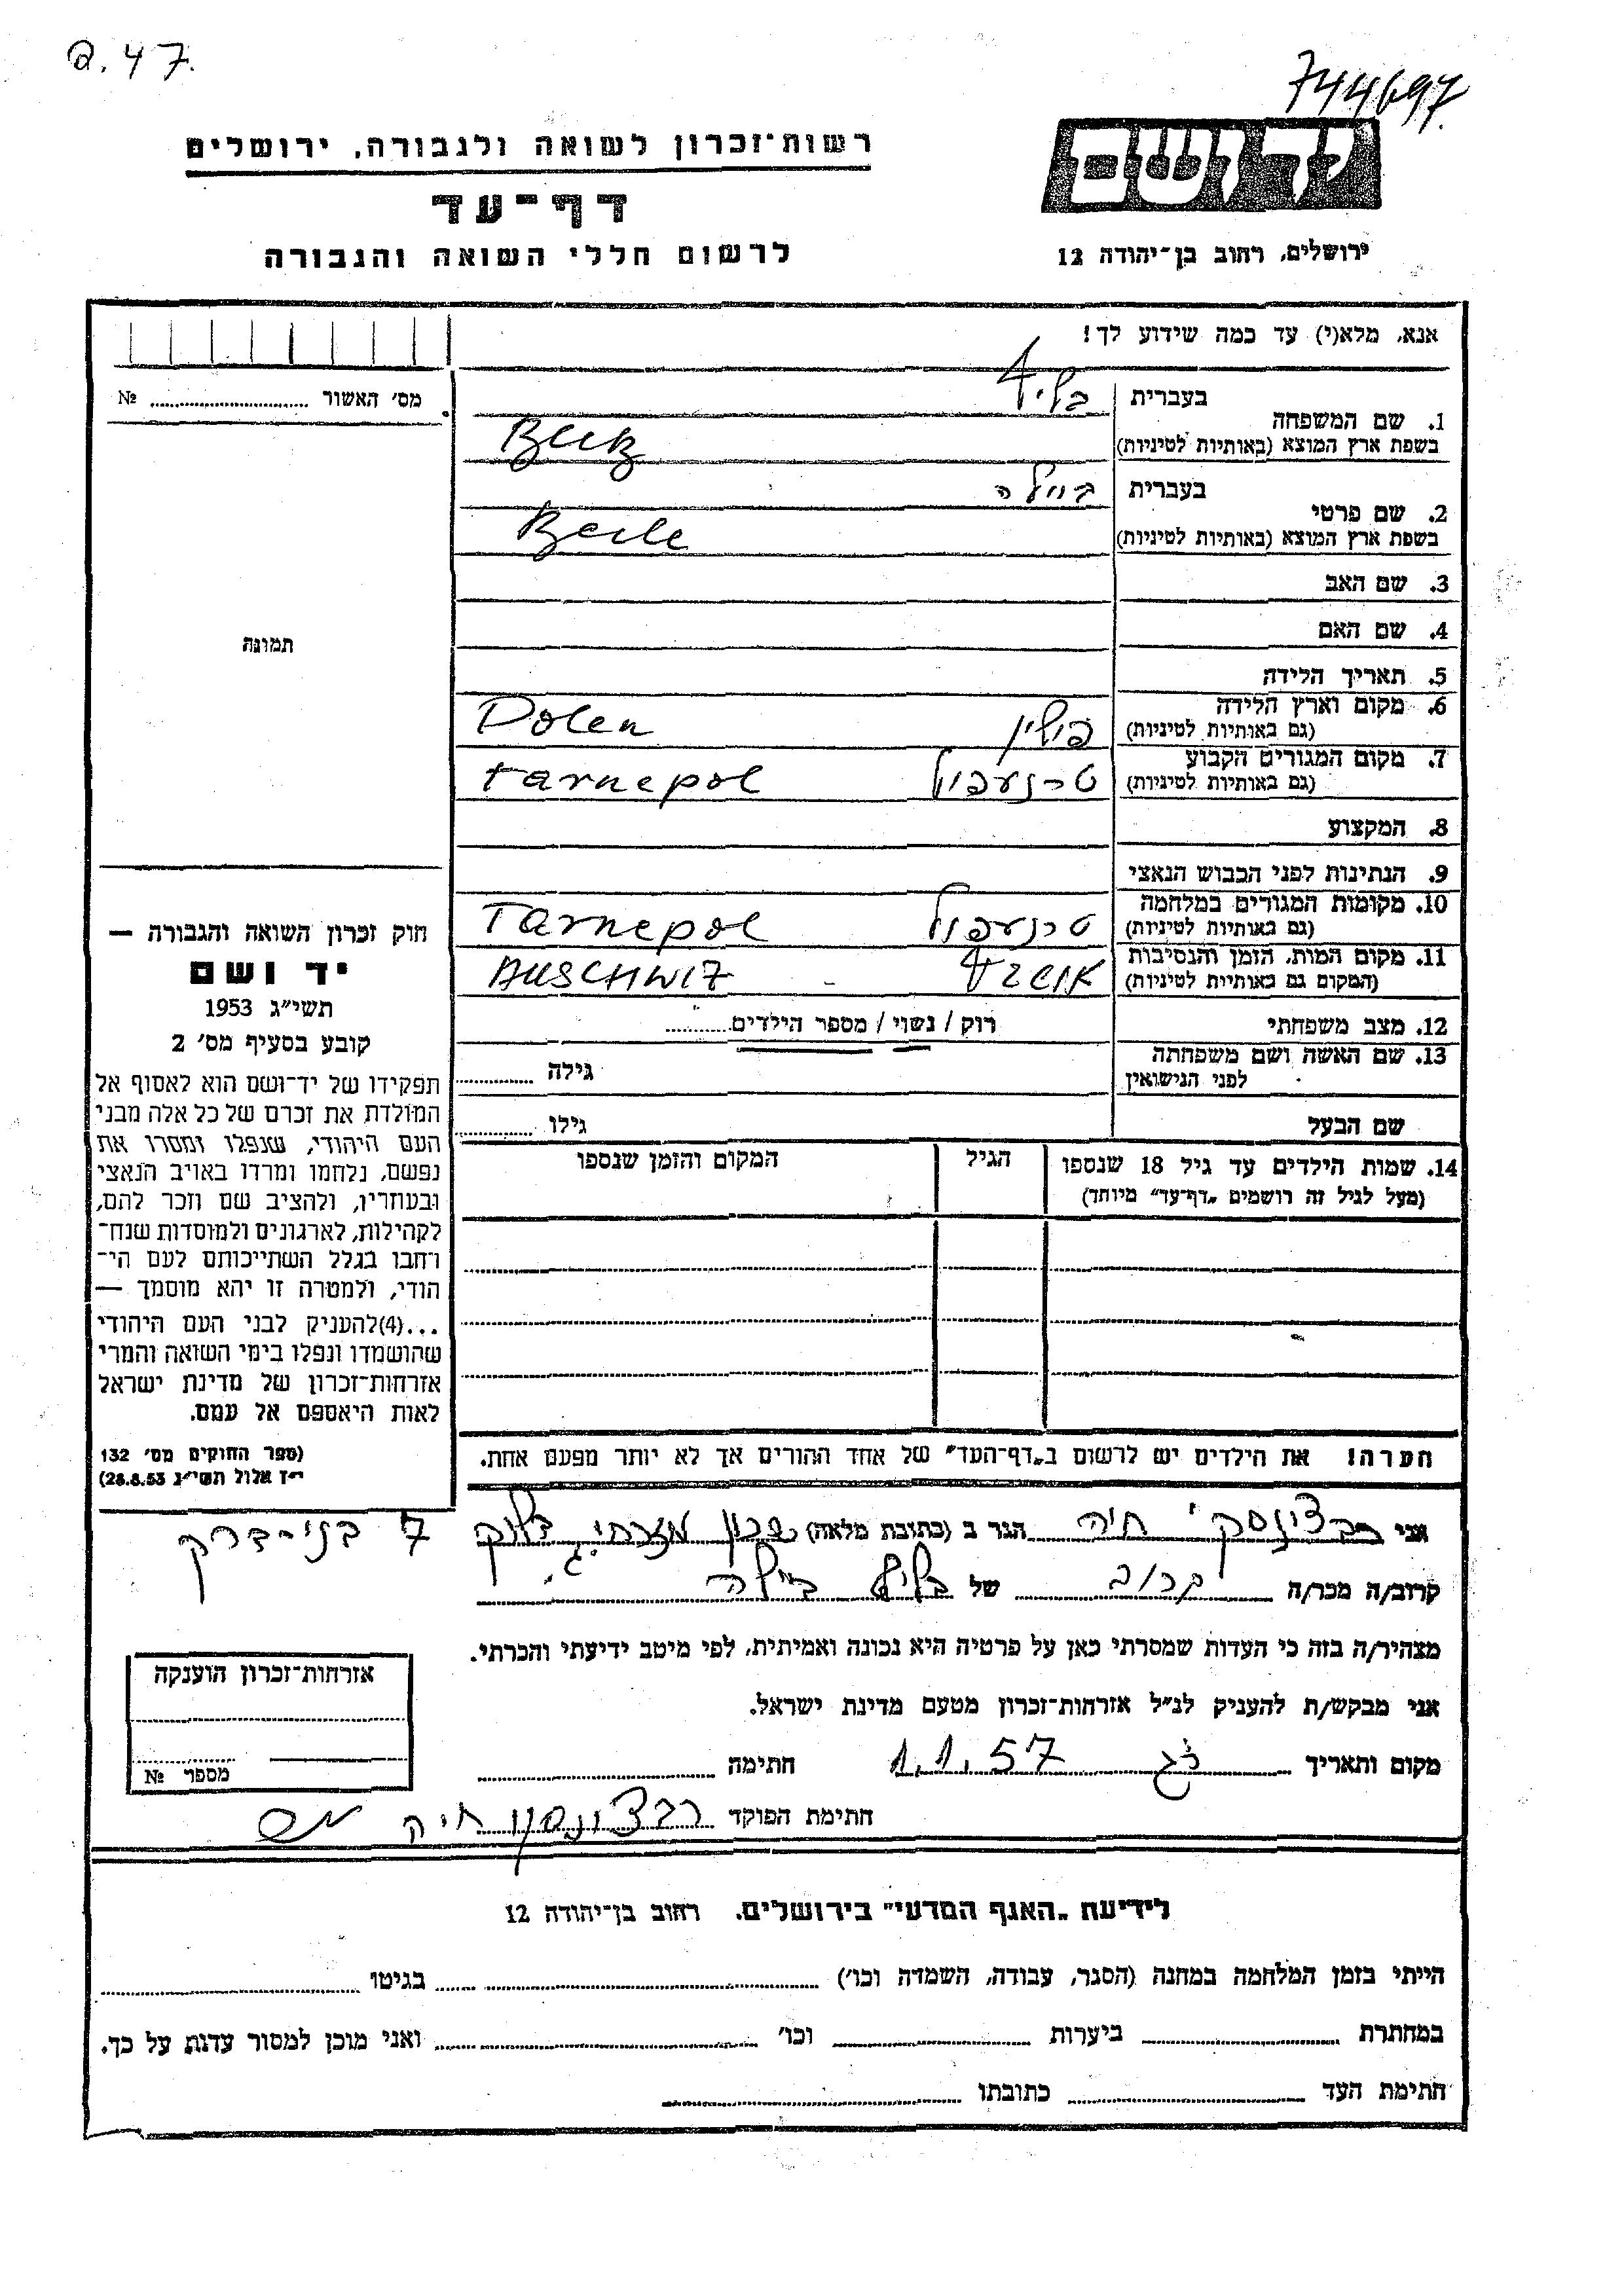 a. 47.
744697
יד ושם
ירושלים, רחוב בן־יהודה 12
רשות־זכרון לשואה ולגבורה, ירושלים
דף־עד
לרשום חללי השואה והגבורה
אנא, מלא(י) עד כמה שידוע לך!
מס׳ האשור № 
1. שם המשפחה
בעברית
בשפת ארץ המוצא (באותיות לטיניות)
2. שם פרטי
בעברית ביילה
בשפת ארץ המוצא (באותיות לטיניות) Beile
3. שם האב
4. שם האם
5. תאריך הלידה
6. מקום וארץ הלידה פולין Polen
(גם באותיות לטיניות)
7. מקום המגורים הקבוע טרנעפול tarnepol
(גם באותיות לטיניות)
8. המקצוע
9. הנתינות לפני הכבוש הנאצי
10. מקומות המגורים במלחמה טרנעפול Tarnepol
(גם באותיות לטיניות)
11. מקום המות, הזמן והנסיבות AUSCHWIZ
(המקום גם באותיות לטיניות)
12. מצב משפחתי רוק / נשוי / מספר הילדים
13. שם האשה ושם משפחתה גילה
לפני הנישואין
שם הבעל גילו
14. שמות הילדים עד גיל 18 שנספו הגיל המקום והזמן שנספו
(מעל לגיל זה רושמים „דף־עד״ מיוחד)
הערה! את הילדים יש לרשום ב„דף־העד״ של אחד ההורים אך לא יותר מפעם אחת.
תמונה
חוק זכרון השואה והגבורה —
יד ושם
תשי״ג 1953
קובע בסעיף מס׳ 2
תפקידו של יד־ושם הוא לאסוף אל
המולדת את זכרם של כל אלה מבני
העם היהודי, שנפלו ומסרו את
נפשם, נלחמו ומרדו באויב הנאצי
ובעוזריו, ולהציב שם וזכר להם,
לקהילות, לארגונים ולמוסדות שנח־
רחבו בגלל השתייכותם לעם הי־
הודי, ולמטרה זו יהא מוסמך —
...(4)להעניק לבני העם היהודי
שהושמדו ונפלו בימי השואה והמרי
אזרחות־זכרון של מדינת ישראל
לאות היאספם אל עמם.
(ספר החוקים מס׳ 132
י״ז אלול תשי״ג 28.8.53)
אני חיה הגר ב (כתובת מלאה) שכון מזרחי בלוק 7 בני-ברק
קרוב/ה מכר/ה קרוב של בילה
מצהיר/ה בזה כי העדות שמסרתי כאן על פרטיה היא נכונה ואמיתית, לפי מיטב ידיעתי והכרתי.
אני מבקש/ת להעניק לנ״ל אזרחות־זכרון מטעם מדינת ישראל.
מקום ותאריך 1.1.57 חתימה
חתימת הפוקד חיה
אזרחות־זכרון הוענקה
מספר №
לידיעת „האגף המדעי״ בירושלים, רחוב בן־יהודה 12
הייתי בזמן המלחמה במחנה (הסגר, עבודה, השמדה וכו׳) בגיטו
במחתרת ביערות וכו׳ ואני מוכן למסור עדות על כך.
חתימת העד כתובתו